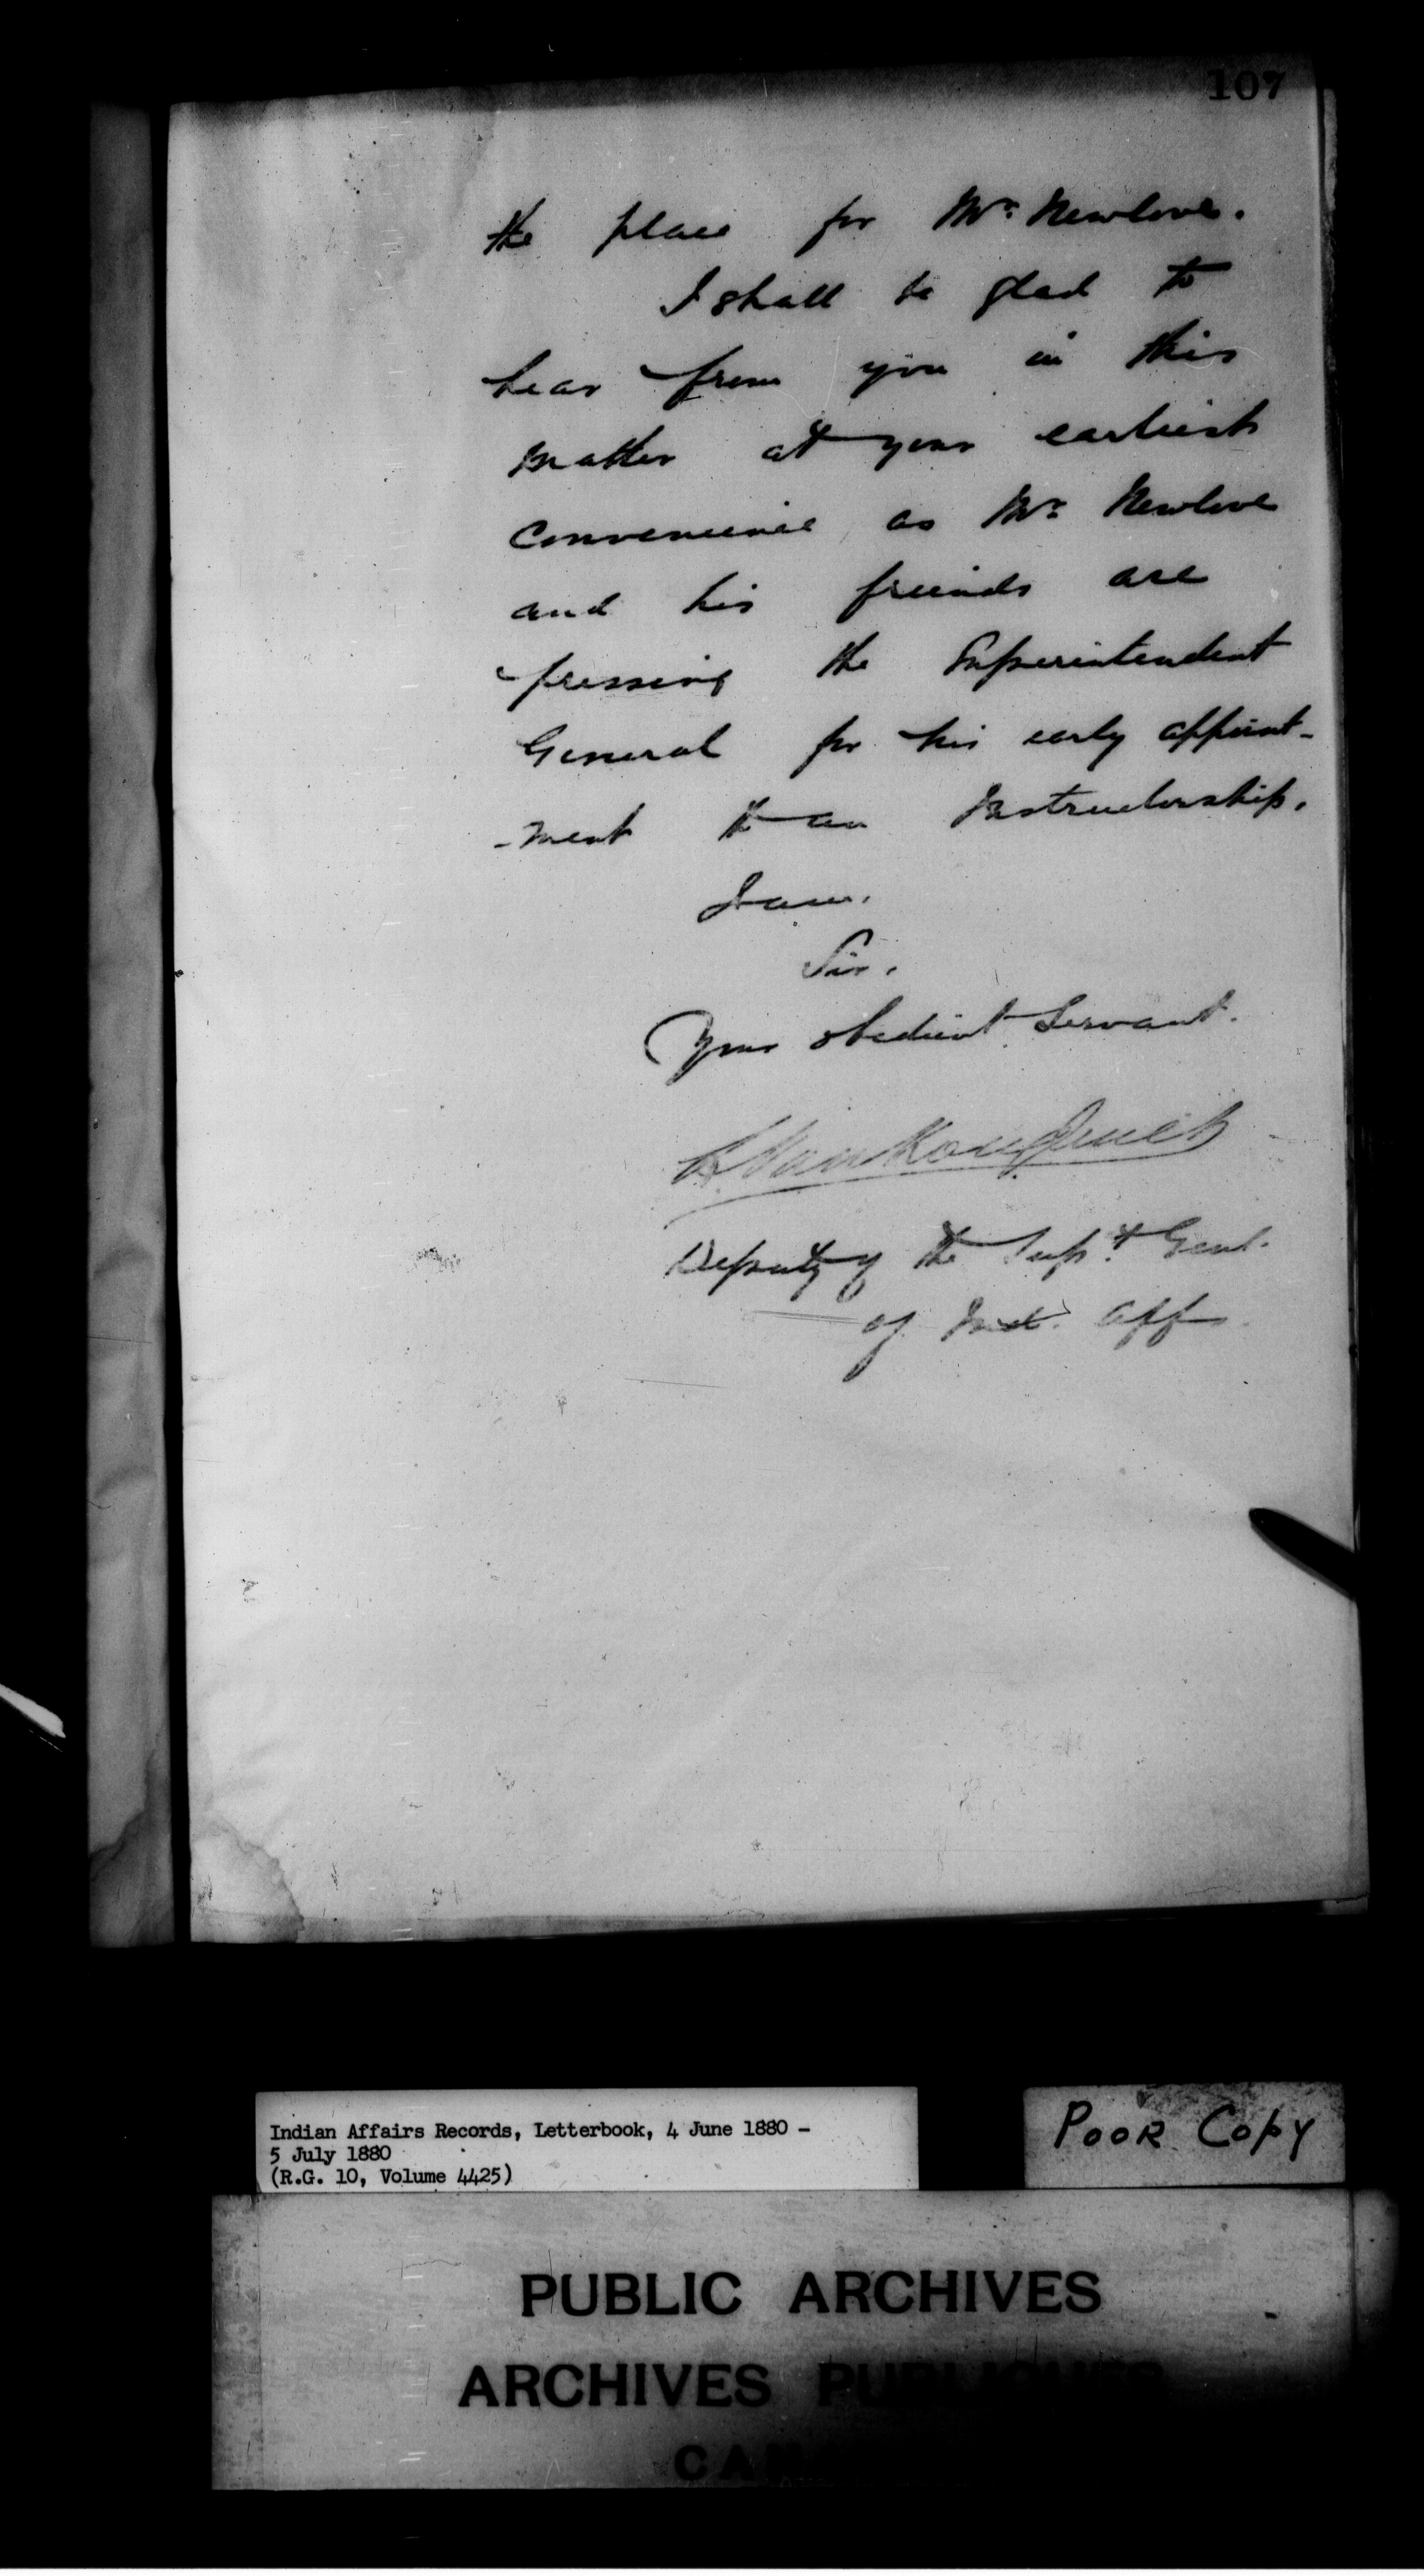 107
the place for Mr. Newlove.
I shall be glad to
hear from you in this
matter at your earliest
convenience as Mr. Newlove
and his friends are
pressing the Superintendent
General for his early appoint-
-ment to an Instructorship.
I am,
Sir,
Your obedient Servant.
L. VanKoughnet
Deputy of the Supt. Genl.
of Ind. Affs.
Indian Affairs Records, Letterbook, 4 June 1880 -
5 July 1880
(R.G. 10, Volume 4425)
POOR COPY
PUBLIC ARCHIVES
ARCHIVES PUBLIQUES
CAN